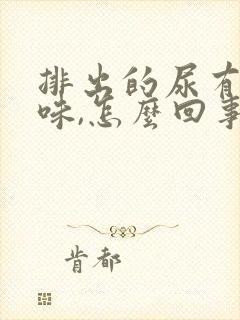 排出的尿有
味,怎麼回事
肯都